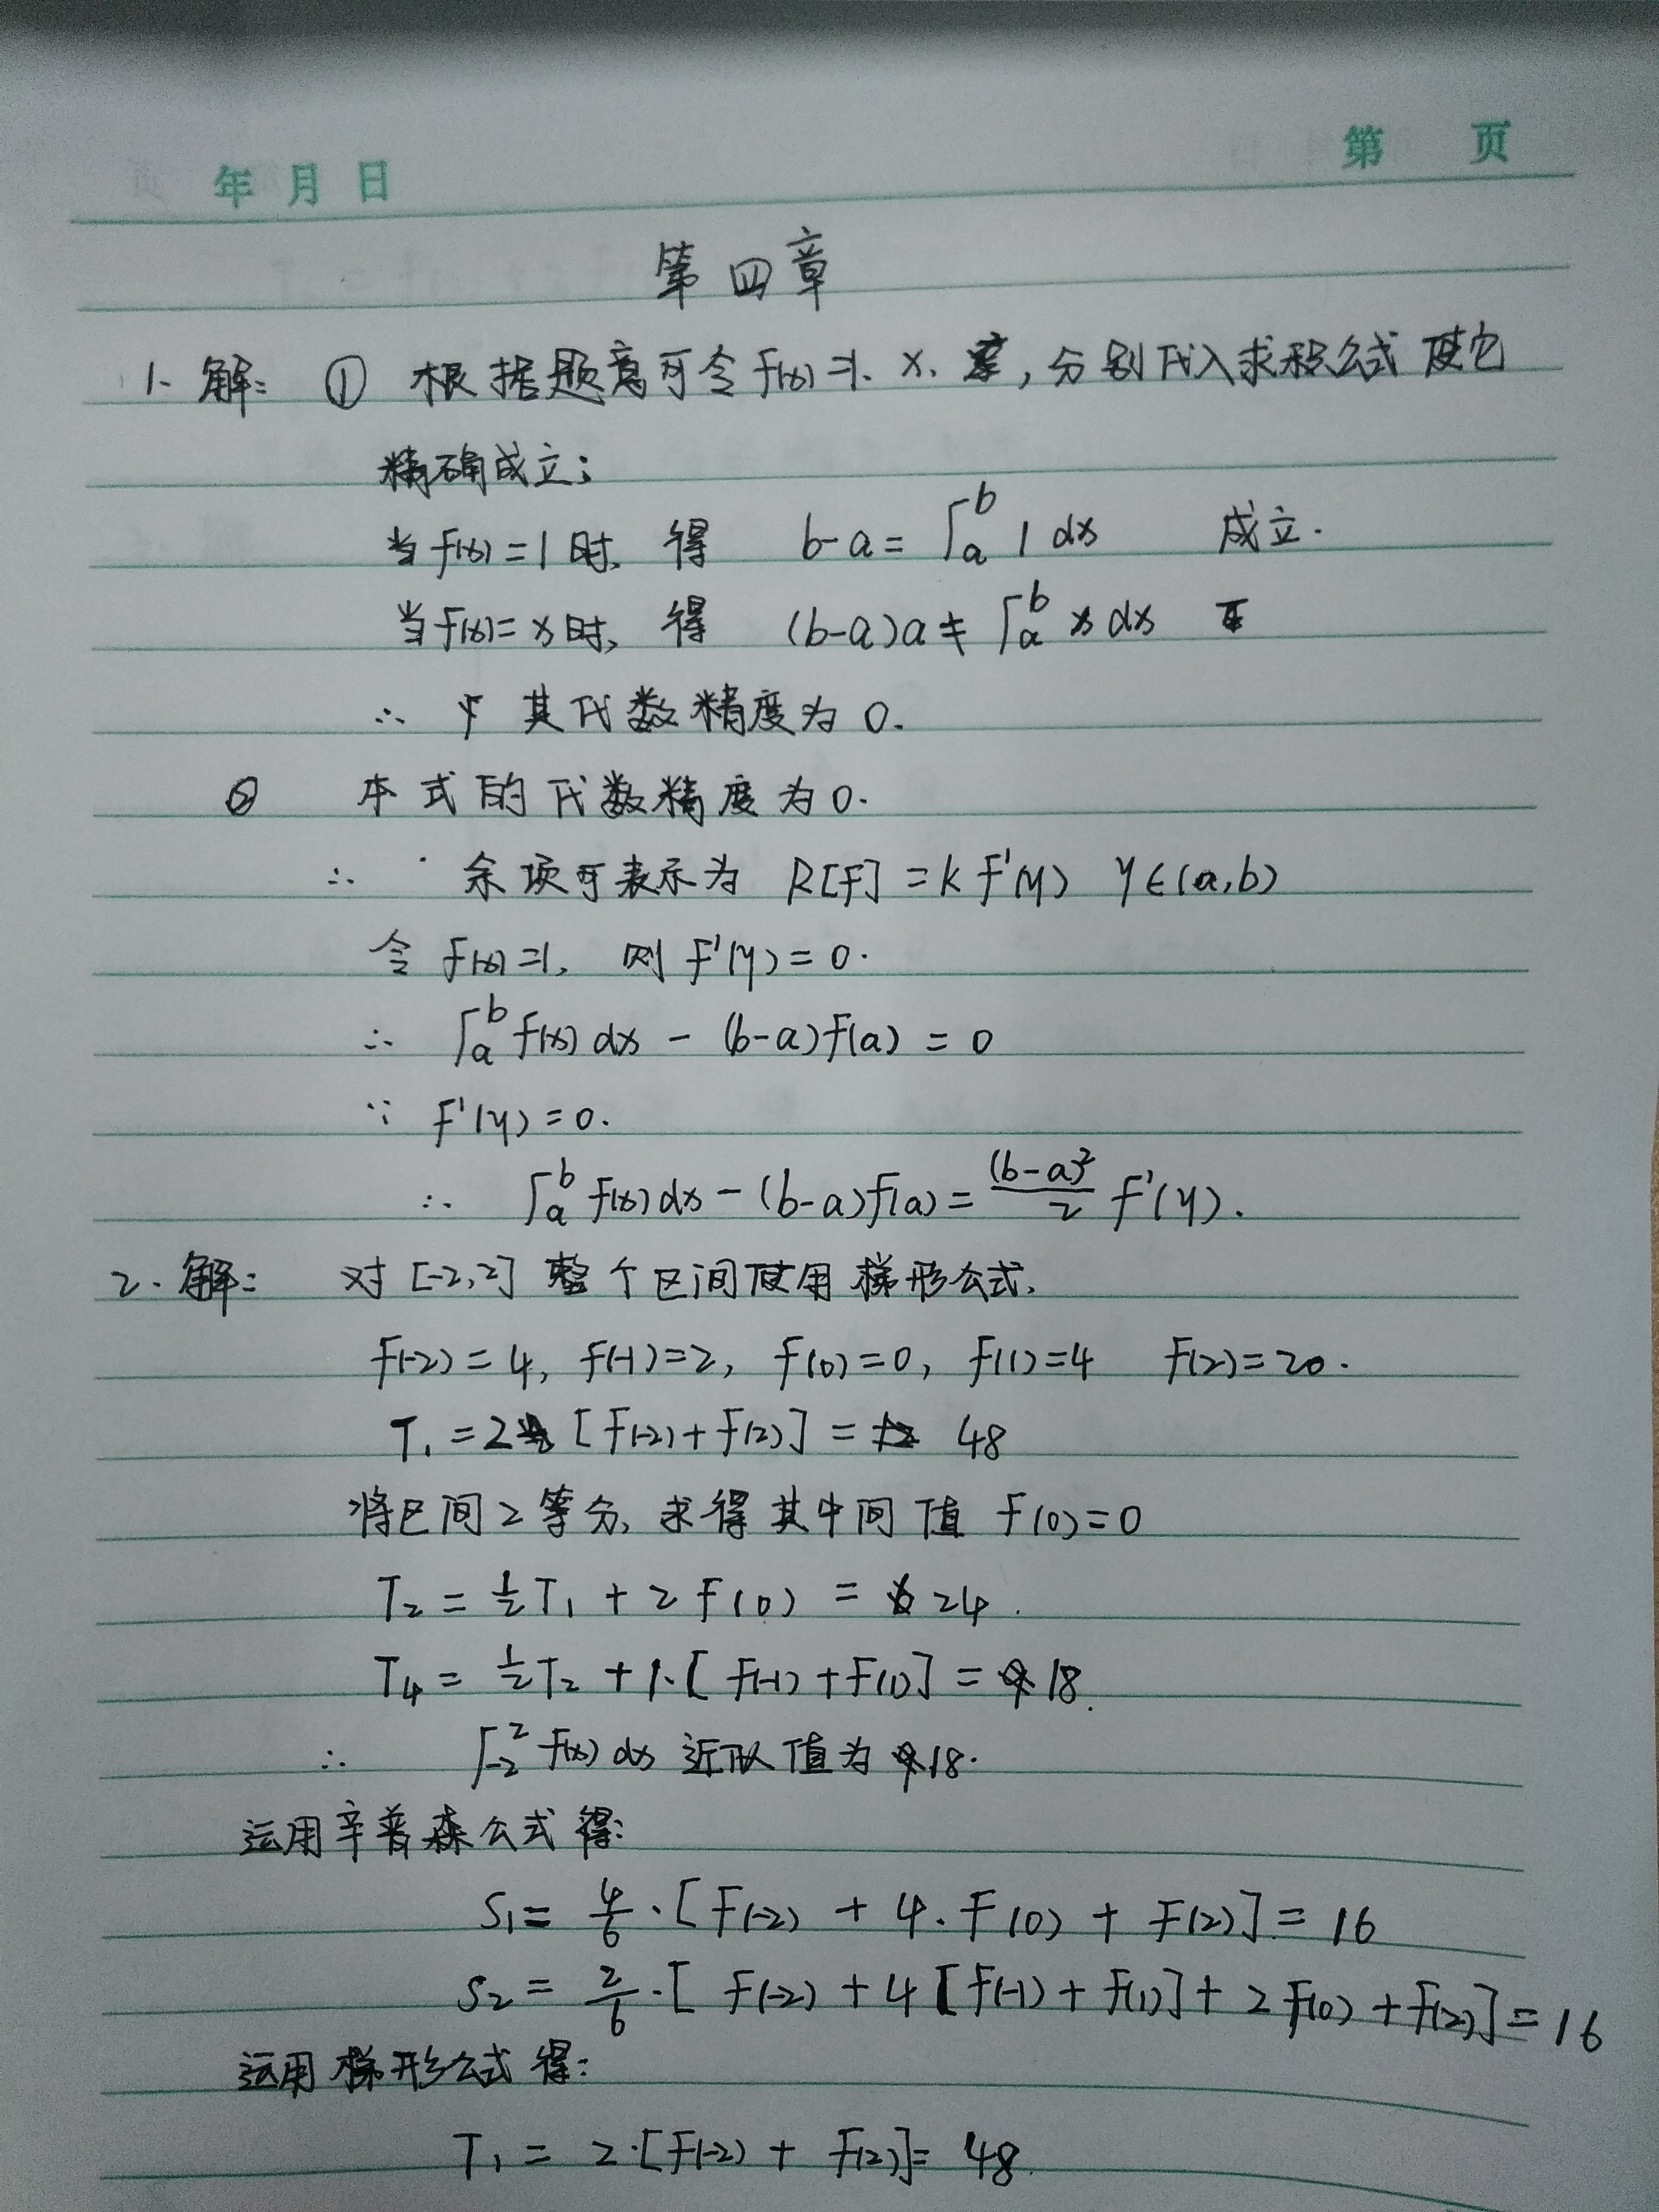 年 月 日 第 页
第四章
1. 解: ① 根据题意可令 f(x)=1. x. , 分别代入求积公式 使它
精确成立;
当 f(x)=1 时, 得 b-a = ∫_a^b 1 dx 成立.
当 f(x)=x 时, 得 (b-a)a ≠ ∫_a^b x dx
∴ 其代数精度为 0.
② 本式的代数精度为 0.
∴ 余项可表示为 R[f] = k f'(η) η∈(a,b)
令 f(x)=1, 则 f'(η)=0.
∴ ∫_a^b f(x) dx - (b-a)f(a) = 0
∵ f'(η)=0.
∴ ∫_a^b f(x) dx - (b-a)f(a) = (b-a)²/2 f'(η).
2. 解: 对 [-2,2] 整个区间使用梯形公式,
f(-2)=4, f(-1)=2, f(0)=0, f(1)=4 f(2)=20.
T₁ = 2 [f(-2)+f(2)] = 48
将区间2等分, 求得其中间值 f(0)=0
T₂ = ½T₁ + 2 f(0) = 24.
T₄ = ½T₂ + 1·[f(-1)+f(1)] = 18.
∴ ∫_-2^2 f(x) dx 近似值为 18.
运用辛普森公式得:
S₁ = 4/6·[f(-2) + 4·f(0) + f(2)] = 16
S₂ = 2/6·[f(-2) + 4[f(-1)+f(1)] + 2f(0) + f(2)] = 16
运用梯形公式得:
T₁ = 2·[f(-2) + f(2)] = 48.